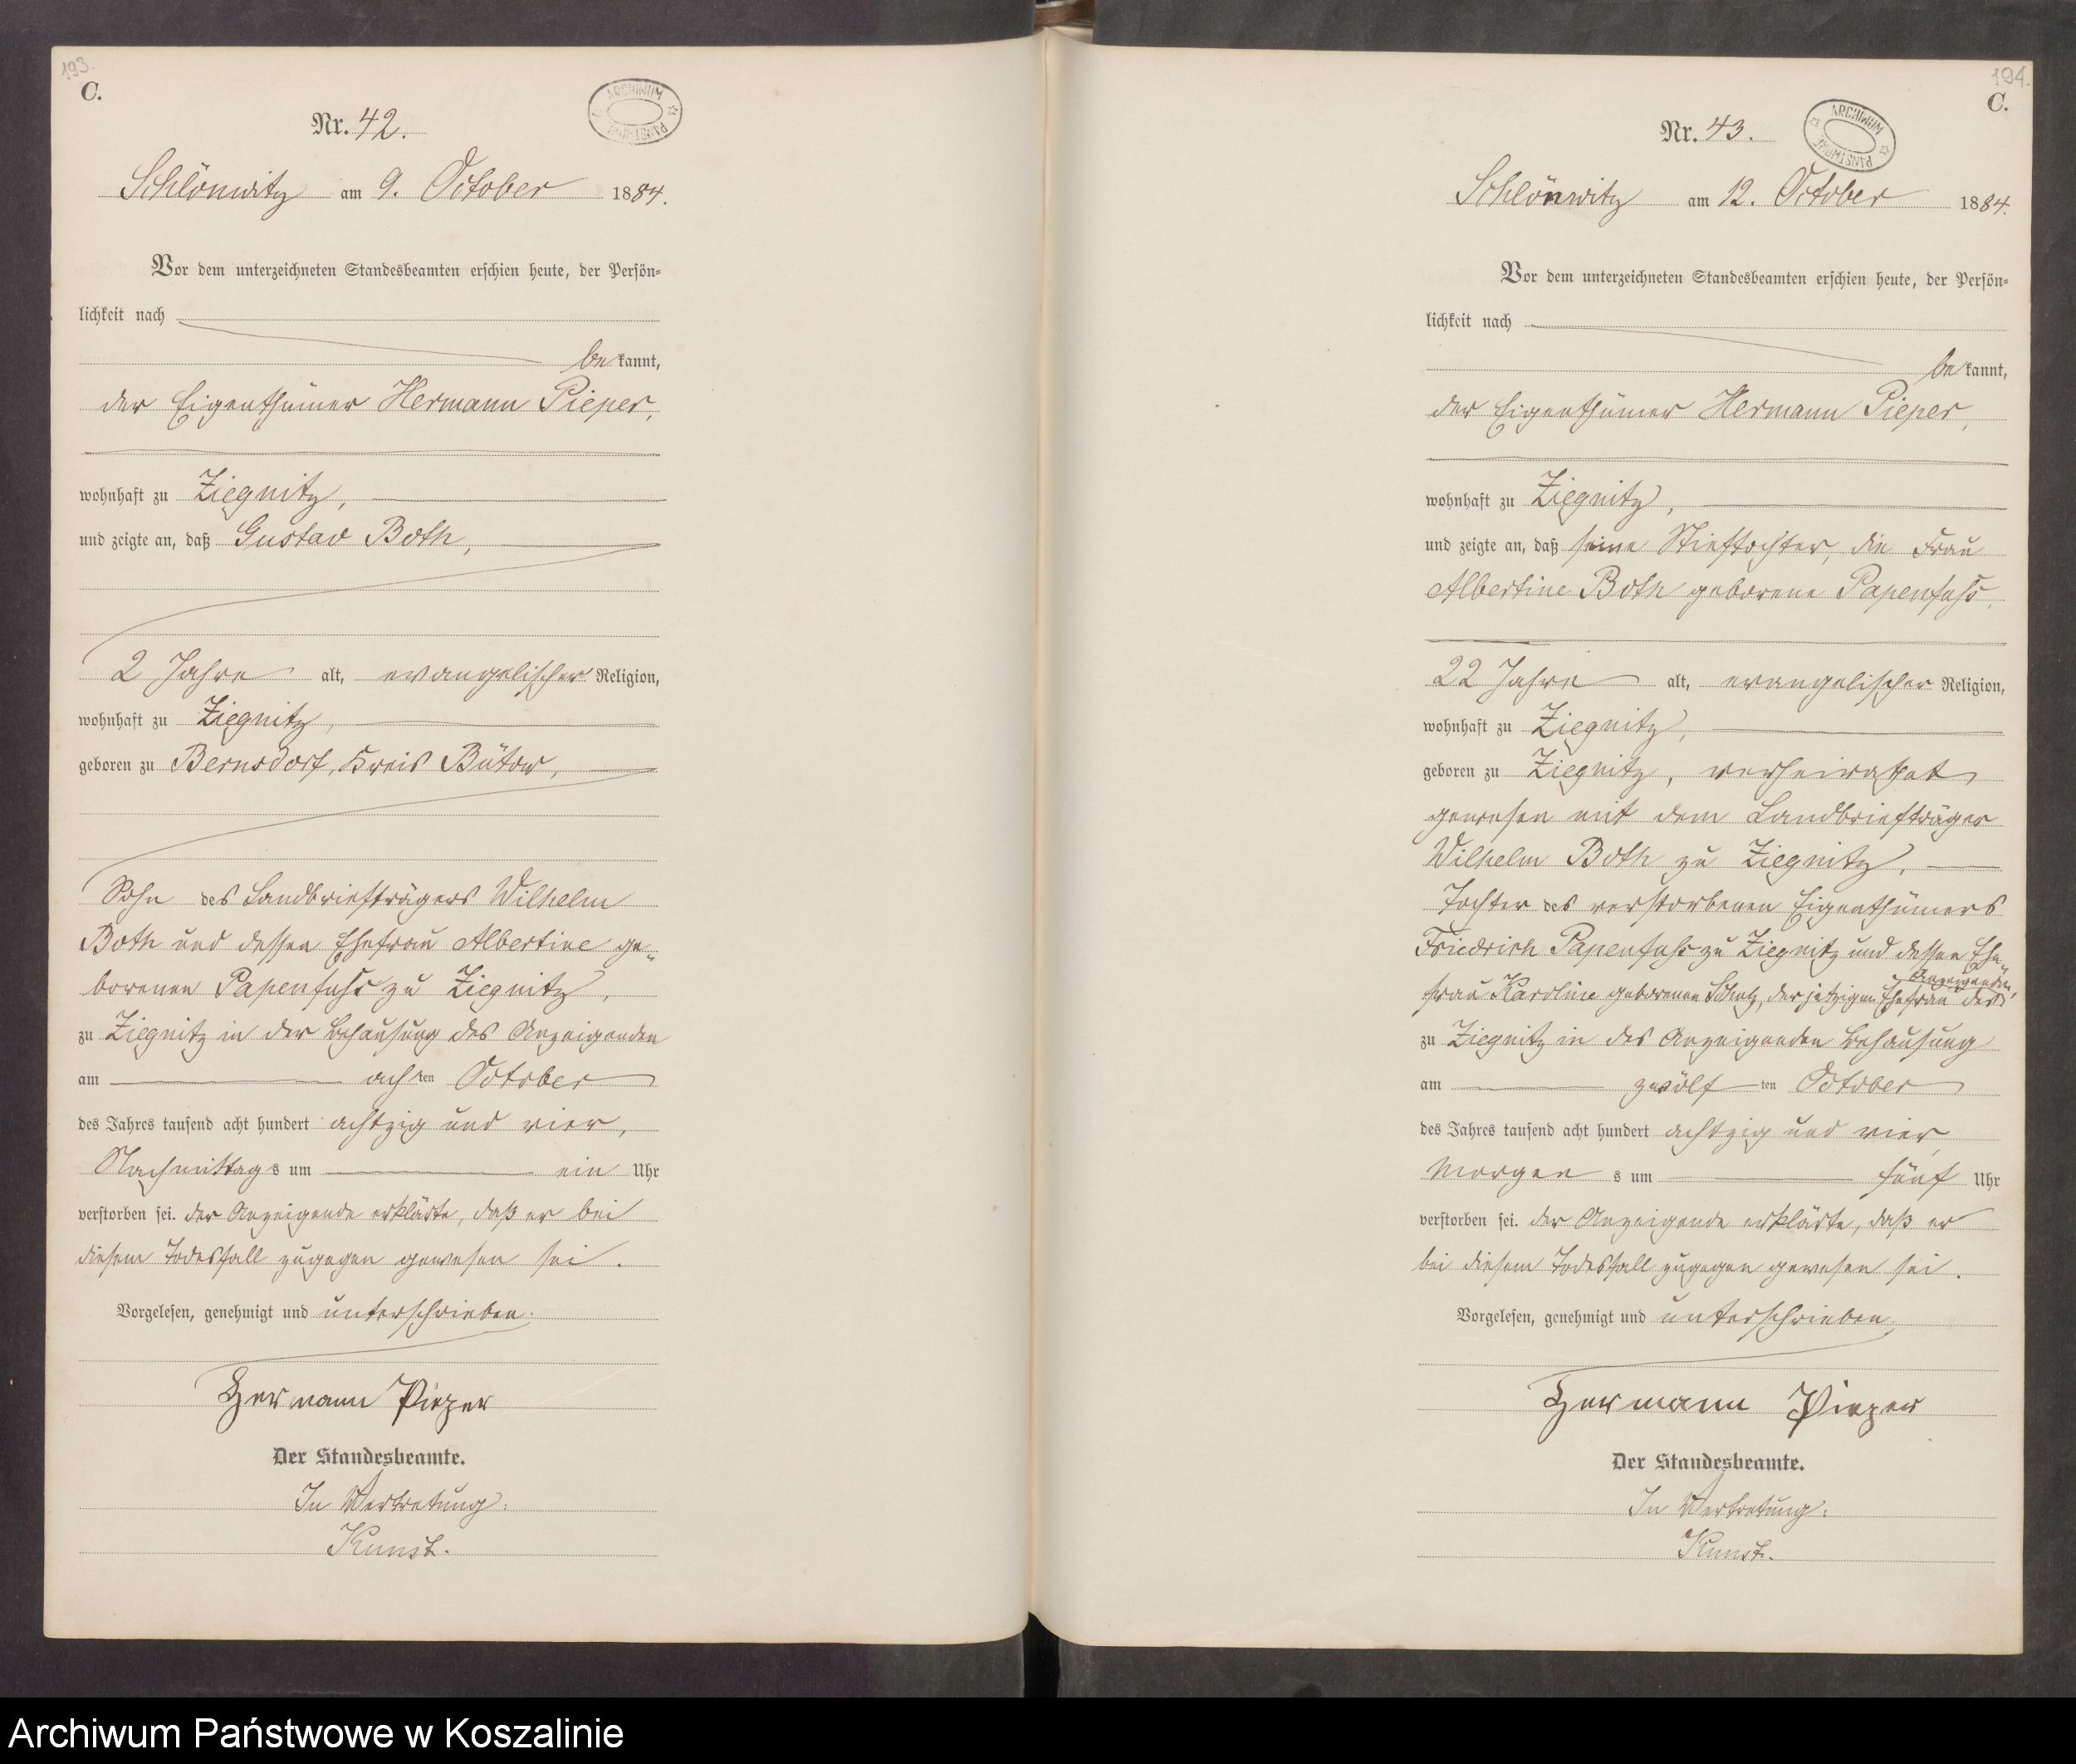 193.
C.
ARCHIWUM PAŃSTWOWE
Nr. 42.
Schlönwitz am 9. October 1884.
Vor dem unterzeichneten Standesbeamten erschien heute, der Persön-
lichkeit nach
be kannt,
der Eigenthümer Hermann Pieper,
wohnhaft zu Ziegnitz,
und zeigte an, daß Gustav Both,
2 Jahre alt, evangelischer Religion,
wohnhaft zu Ziegnitz,
geboren zu Bernsdorf, Kreis Bütow,
Sohn des Landbriefträgers Wilhelm
Both und dessen Ehefrau Albertine ge-
borenen Papenfuß zu Ziegnitz,
zu Ziegnitz in der Behausung des Anzeigenden
am achten October
des Jahres tausend acht hundert achtzig und vier,
Nachmittags um ein Uhr
verstorben sei. der Anzeigende erklärte, daß er bei
diesem Todesfall zugegen gewesen sei.
Vorgelesen, genehmigt und unterschrieben.
Hermann Pieper
Der Standesbeamte.
In Vertretung:
Kunst.
194.
C.
ARCHIWUM PAŃSTWOWE
Nr. 43.
Schlönwitz am 12. October 1884.
Vor dem unterzeichneten Standesbeamten erschien heute, der Persön-
lichkeit nach
be kannt,
der Eigenthümer Hermann Pieper,
wohnhaft zu Ziegnitz,
und zeigte an, daß seine Stieftochter, die Frau
Albertine Both geborene Papenfuß,
22 Jahre alt, evangelischer Religion,
wohnhaft zu Ziegnitz,
geboren zu Ziegnitz, verheirathet
gewesen mit dem Landbriefträger
Wilhelm Both zu Ziegnitz,
Tochter des verstorbenen Eigenthümers
Friedrich Papenfuß zu Ziegnitz und dessen Ehe-
frau Karoline geborenen Schulz, der jetzigen Ehefrau des Anzeigenden,
zu Ziegnitz in des Anzeigenden Behausung
am zwölften October
des Jahres tausend acht hundert achtzig und vier
Morgens um fünf Uhr
verstorben sei. der Anzeigende erklärte, daß er
bei diesem Todesfall zugegen gewesen sei.
Vorgelesen, genehmigt und unterschrieben.
Hermann Pieper
Der Standesbeamte.
In Vertretung:
Kunst.
Archiwum Państwowe w Koszalinie